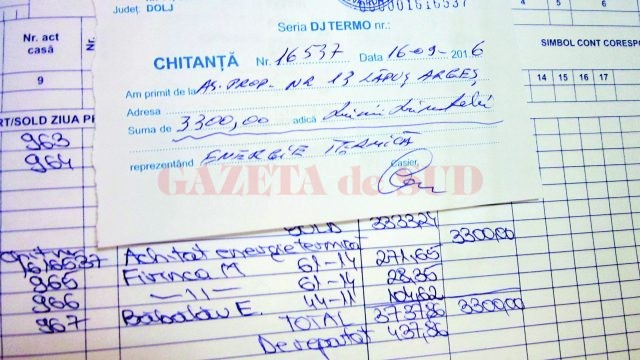 Județ: DOLJ
000001616537
Seria DJ TERMO nr.:
CHITANȚĂ Nr. 16537 Data 16-09-2016
Am primit de la AS. PROP. NR 13 LĂPUȘ ARGEȘ
Adresa
Suma de 3300,00 adică
reprezentând ENERGIE TERMICĂ
Casier,
GAZETA de SUD
Nr. act
casă
Nr.
SIMBOL CONT CORESPO
9
14 15 16 17
RT/SOLD ZIUA PR
963
964
SOLD 3333,24
1616537 Achitat energie termica 3300,00
965 Firinca M 61-14 271,65
966 —11— 61-14 28,35
967 Babalău E. 44-11 104,62
TOTAL 3737,86 3300,00
De reportat 437,86